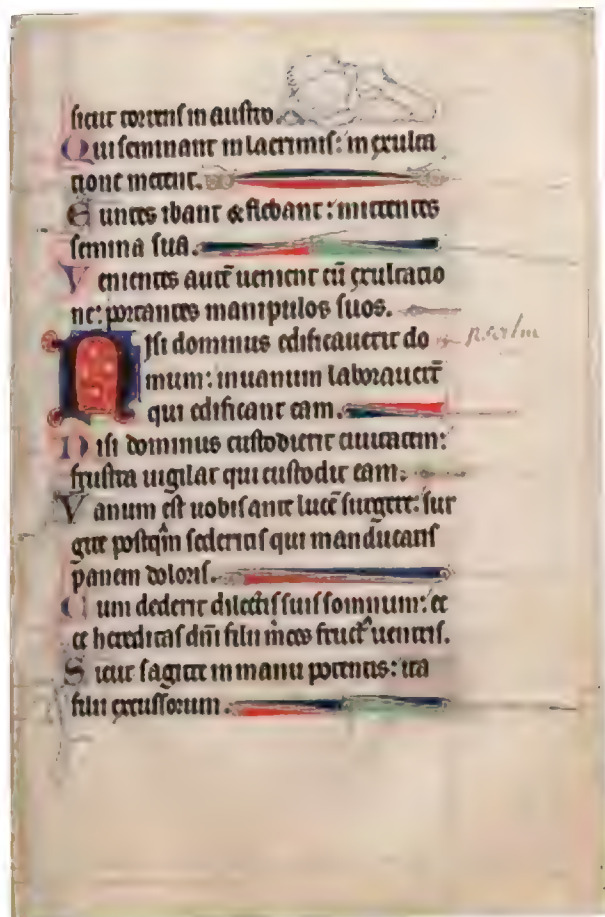 sicut torrens in austro.
Qui seminant in lacrimis: in exulta
tione metent.
Euntes ibant & flebant: mittentes
semina sua.
Venientes aut̄ uenient cū exultatio
ne: portantes manipulos suos.
Nisi dominus edificauerit do
mum: inuanum laborauer̄t
qui edificant eam.
Nisi dominus custodierit ciuitatem:
frustra uigilat qui custodit eam.
Vanum est uobis ante lucē surgere: sur
gite postq̄m sederitis qui manducatis
panem doloris.
Cum dederit dilectis suis somnum: ec
ce hereditas dn̄i filii m̄ces fruct᷒ uentris.
Sicut sagitte in manu potentis: ita
filii excussorum.